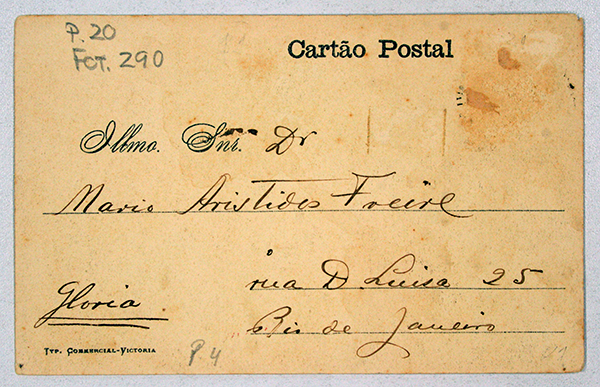 P. 20
Fot. 290
Cartão Postal
Illmo. Snr. Dr
Mario Aristides Freire
rua D Luisa 25
Gloria
Rio de Janeiro
Typ. Commercial-Victoria
P 4